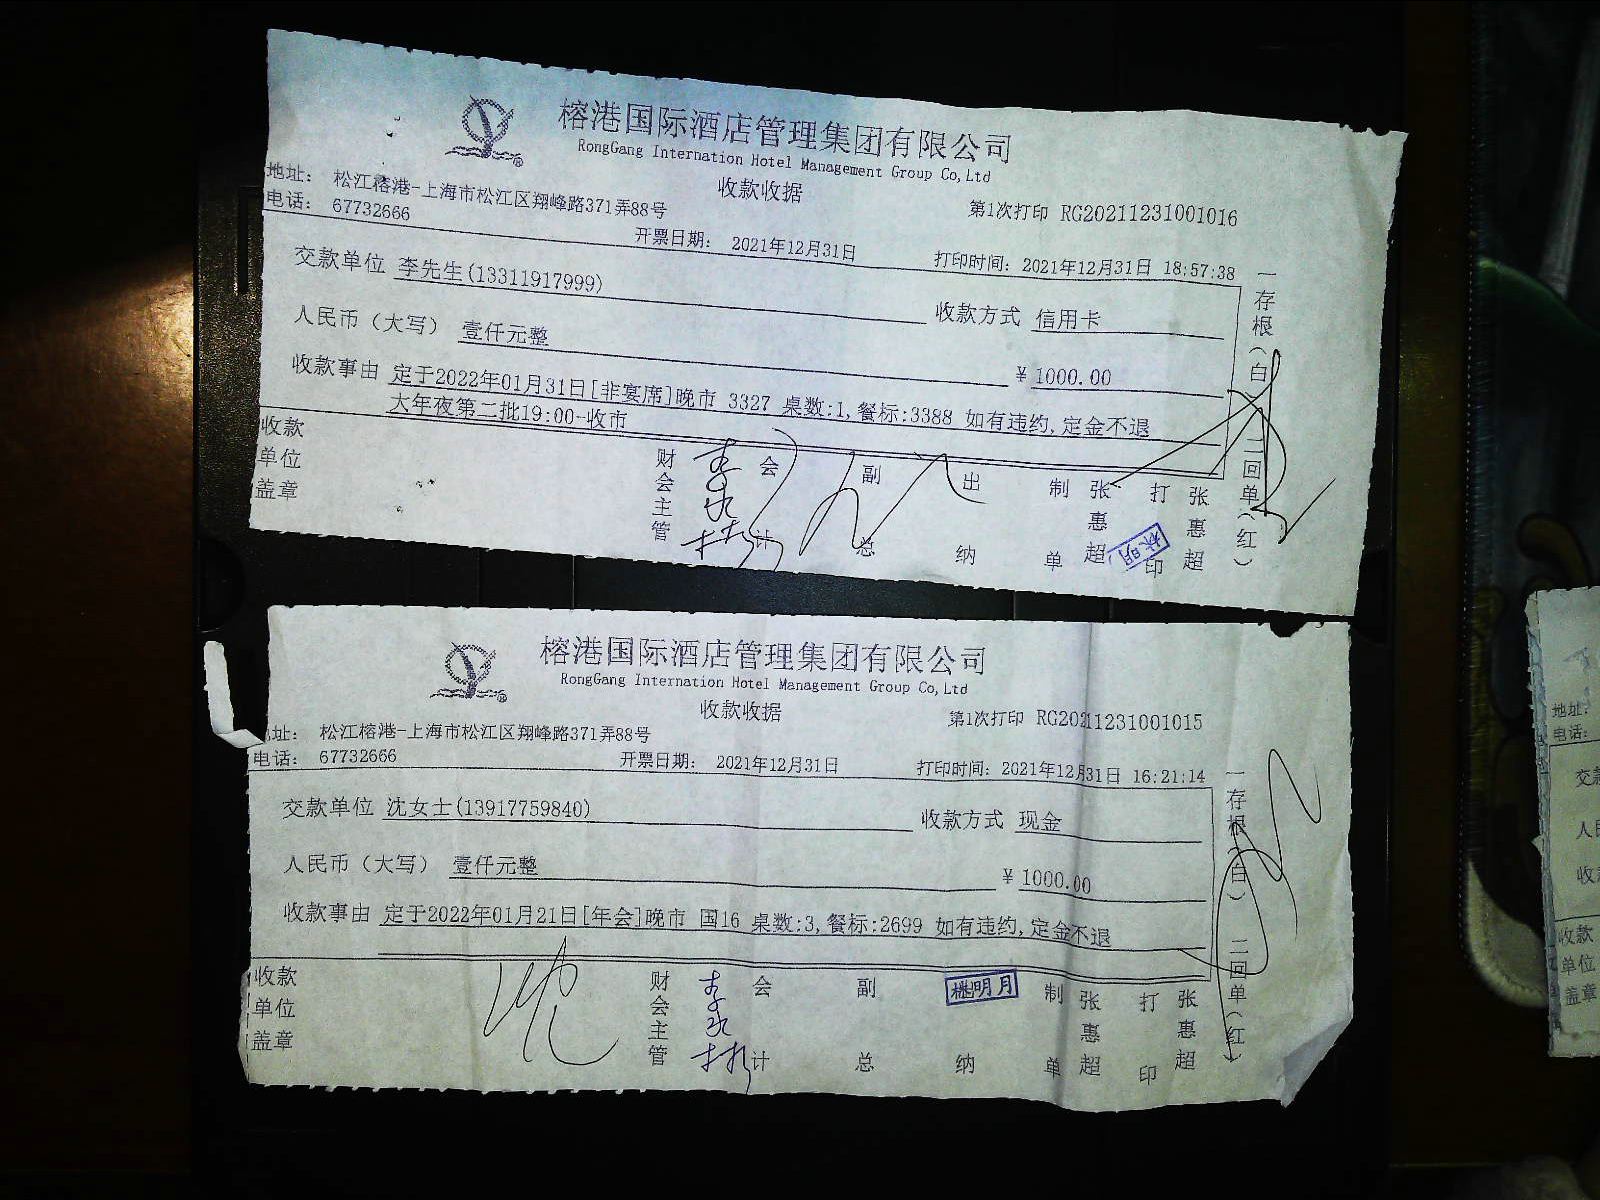 榕港国际酒店管理集团有限公司
RongGang Internation Hotel Management Group Co,Ltd
收款收据
地址： 松江榕港-上海市松江区翔峰路371弄88号
第1次打印 RG20211231001016
电话： 67732666
开票日期： 2021年12月31日
打印时间：2021年12月31日 18:57:38
交款单位 李先生(13311917999)
收款方式 信用卡
人民币（大写） 壹仟元整
¥ 1000.00
收款事由 定于2022年01月31日[非宴席]晚市 3327 桌数:1,餐标:3388 如有违约,定金不退
大年夜第二批19:00-收市
收款单位盖章
财会主管
会计
副总
出纳
制单 张惠超
打印 张惠超
一存根(白) 二回单(红)
榕港国际酒店管理集团有限公司
RongGang Internation Hotel Management Group Co,Ltd
收款收据
址： 松江榕港-上海市松江区翔峰路371弄88号
第1次打印 RG20211231001015
电话： 67732666
开票日期： 2021年12月31日
打印时间：2021年12月31日 16:21:14
交款单位 沈女士(13917759840)
收款方式 现金
人民币（大写） 壹仟元整
¥ 1000.00
收款事由 定于2022年01月21日[年会]晚市 国16 桌数:3,餐标:2699 如有违约,定金不退
收款单位盖章
财会主管
会计
副总
纳
制单 张惠超
打印 张惠超
一存根(白) 二回单(红)
地址：
电话：
交
人
收
收款
单位
盖章